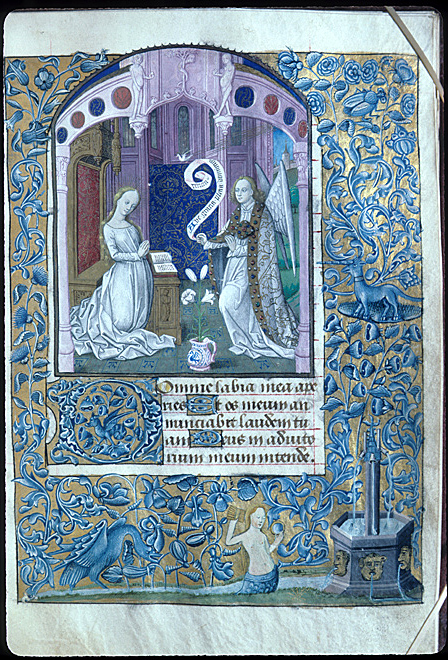 Ave gratia plena
Domine labia mea ape
ries Et os meum an
nunciabit laudem tu
am Deus in adiuto
rium meum intende.